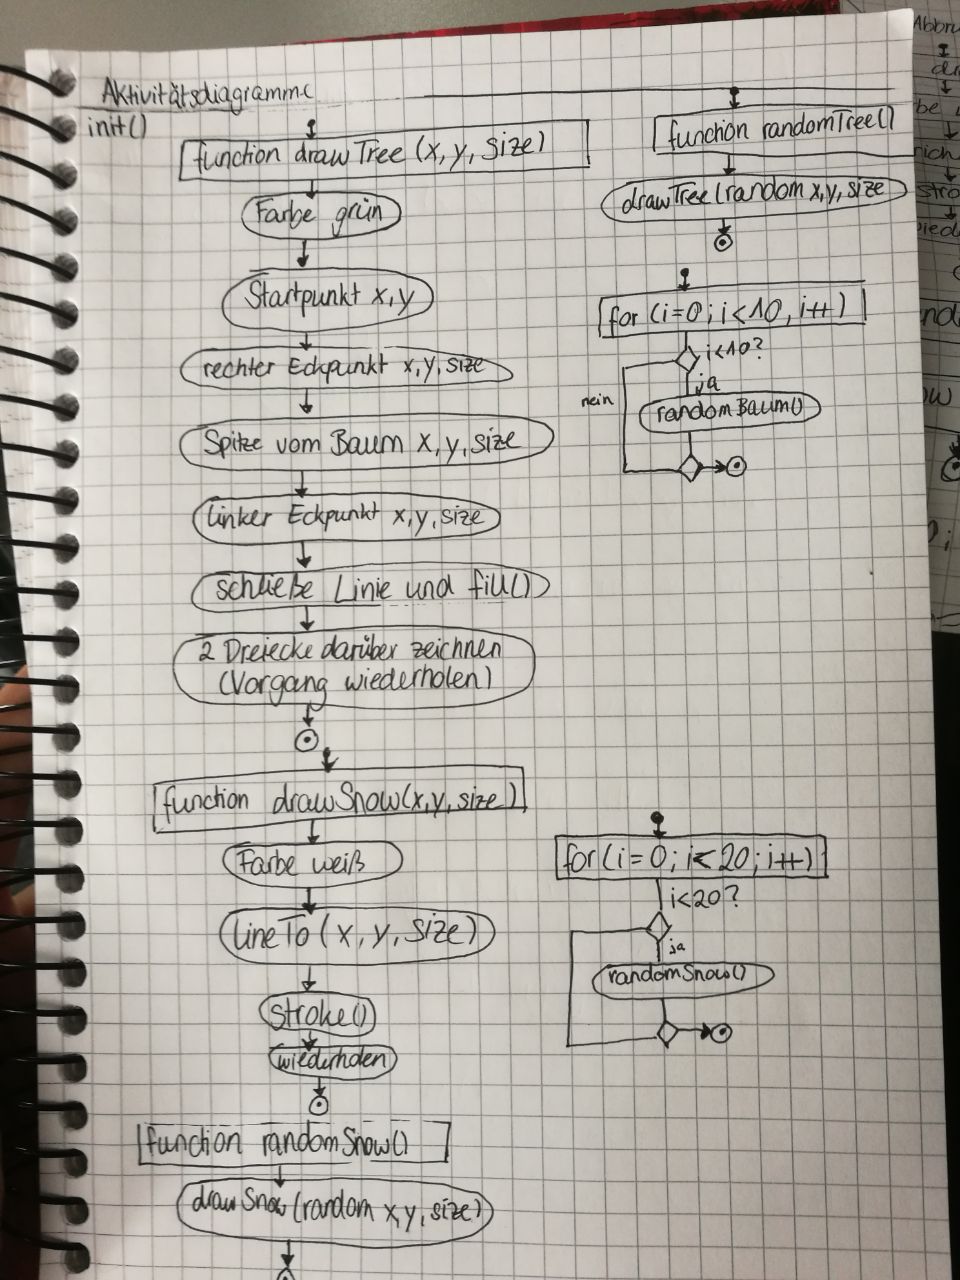 Aktivitätsdiagramme
init()
function drawTree (x, y, size)
Farbe grün
Startpunkt x, y
rechter Eckpunkt x, y, size
Spitze vom Baum x, y, size
linker Eckpunkt x, y, size
schließe Linie und fill()
2 Dreiecke darüber zeichnen
(Vorgang wiederholen)
function drawSnow(x, y, size)
Farbe weiß
lineTo (x, y, size)
stroke()
wiederholen
function randomSnow()
drawSnow(random x, y, size)
function randomTree()
drawTree(random x, y, size
for (i=0; i<10, i++)
i<10?
ja
nein
randomBaum()
for (i=0; i<20; i++)
i<20?
ja
randomSnow()